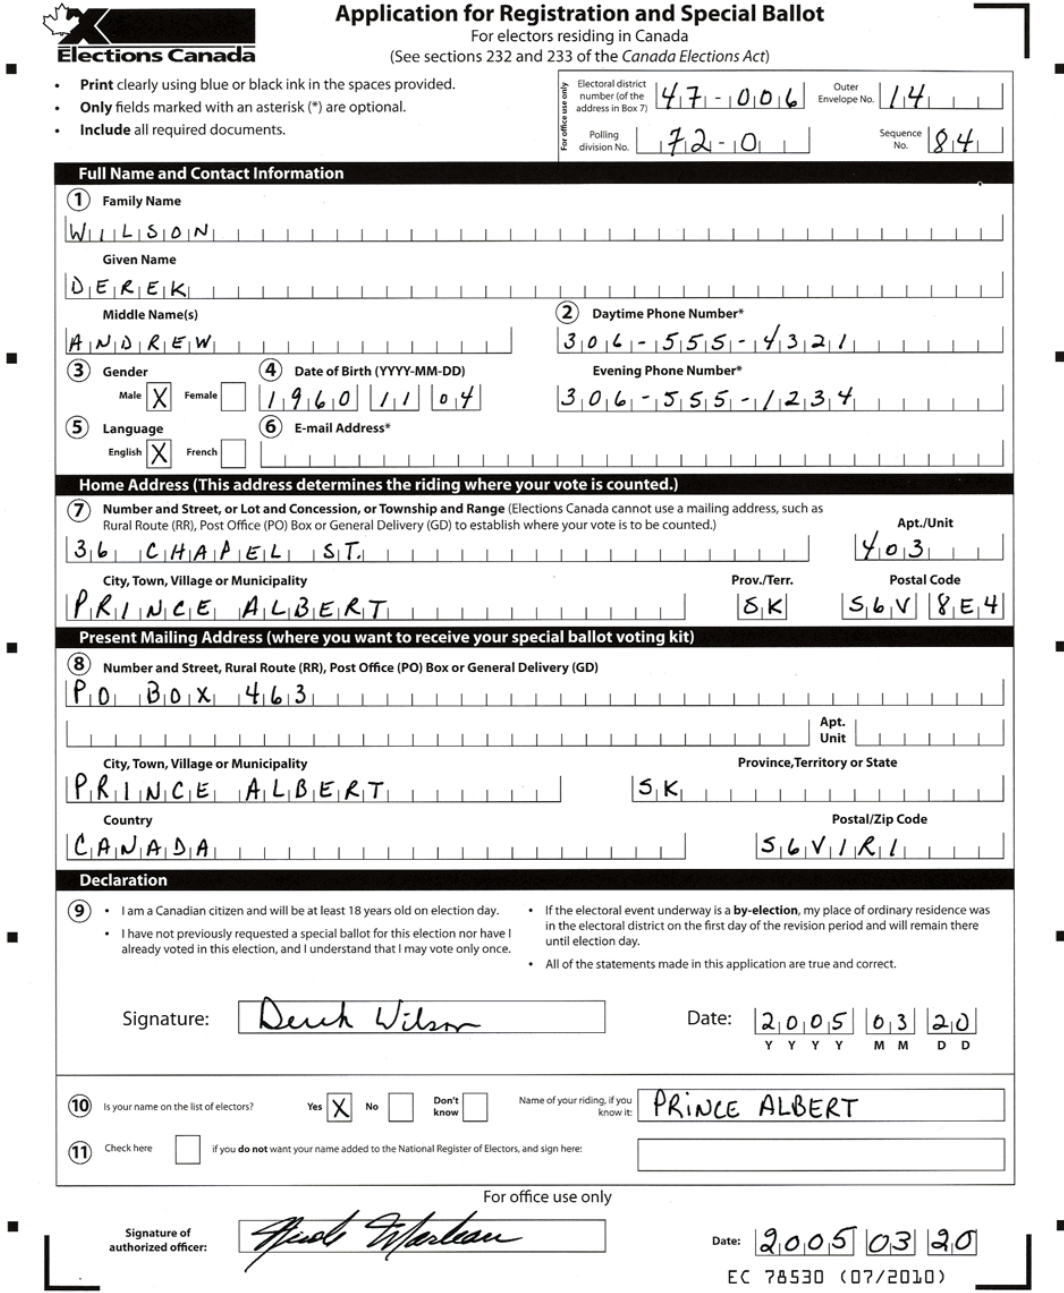 Elections Canada
Application for Registration and Special Ballot
For electors residing in Canada
(See sections 232 and 233 of the Canada Elections Act)
• Print clearly using blue or black ink in the spaces provided.
• Only fields marked with an asterisk (*) are optional.
• Include all required documents.
For office use only
Electoral district number (of the address in Box 7) 47-006
Outer Envelope No. 14
Polling division No. 72-0
Sequence No. 84
Full Name and Contact Information
1 Family Name
WILSON
Given Name
DEREK
Middle Name(s)
ANDREW
2 Daytime Phone Number*
306-555-4321
3 Gender
Male X Female
4 Date of Birth (YYYY-MM-DD)
1960 11 04
Evening Phone Number*
306-555-1234
5 Language
English X French
6 E-mail Address*
Home Address (This address determines the riding where your vote is counted.)
7 Number and Street, or Lot and Concession, or Township and Range (Elections Canada cannot use a mailing address, such as
Rural Route (RR), Post Office (PO) Box or General Delivery (GD) to establish where your vote is to be counted.)
36 CHAPEL ST.
Apt./Unit
403
City, Town, Village or Municipality
PRINCE ALBERT
Prov./Terr.
SK
Postal Code
S6V 8E4
Present Mailing Address (where you want to receive your special ballot voting kit)
8 Number and Street, Rural Route (RR), Post Office (PO) Box or General Delivery (GD)
PO BOX 463
Apt. Unit
City, Town, Village or Municipality
PRINCE ALBERT
Province,Territory or State
SK
Country
CANADA
Postal/Zip Code
S6V1R1
Declaration
9 • I am a Canadian citizen and will be at least 18 years old on election day.
• I have not previously requested a special ballot for this election nor have I
already voted in this election, and I understand that I may vote only once.
• If the electoral event underway is a by-election, my place of ordinary residence was
in the electoral district on the first day of the revision period and will remain there
until election day.
• All of the statements made in this application are true and correct.
Signature: Derek Wilson
Date: 2005 03 20
YYYY MM DD
10 Is your name on the list of electors? Yes X No Don't know
Name of your riding, if you know it: PRINCE ALBERT
11 Check here if you do not want your name added to the National Register of Electors, and sign here:
For office use only
Signature of authorized officer:
Date: 2005 03 20
EC 78530 (07/2010)